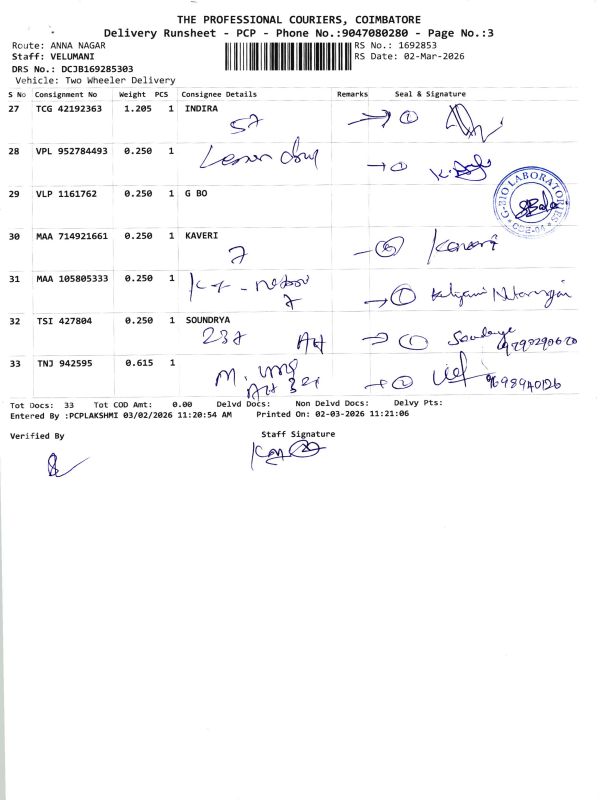 THE PROFESSIONAL COURIERS, COIMBATORE
Delivery Runsheet - PCP - Phone No.:9047080280 - Page No.:3
Route: ANNA NAGAR RS No.: 1692853
Staff: VELUMANI RS Date: 02-Mar-2026
DRS No.: DCJB169285303
Vehicle: Two Wheeler Delivery
S No Consignment No Weight PCS Consignee Details Remarks Seal & Signature
27 TCG 42192363 1.205 1 INDIRA
57 → 1
28 VPL 952784493 0.250 1
→ 1
29 VLP 1161762 0.250 1 G BO
G-BIO LABORATORIES
CBE-04
30 MAA 714921661 0.250 1 KAVERI
7 Kaveri
31 MAA 105805333 0.250 1
7 → 1 Kalyani
32 TSI 427804 0.250 1 SOUNDRYA
237 AH → 1
33 TNJ 942595 0.615 1
M. → 2 9698940126
AH
Tot Docs: 33 Tot COD Amt: 0.00 Delvd Docs: Non Delvd Docs: Delvy Pts:
Entered By :PCPLAKSHMI 03/02/2026 11:20:54 AM Printed On: 02-03-2026 11:21:06
Verified By Staff Signature